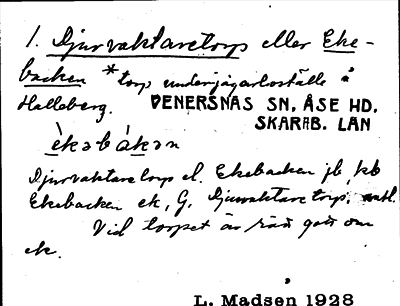 1. Djurvaktaretorp eller Eke-
backen *torp under jägarboställe å
Halleberg. VENERSNÄS SN, ÅSE HD.
SKARAB. LÄN
èkəbákən
Djurvaktaretorp el. Ekebacken jb, kb
Ekebacken ek, G, Djurvaktaretorp,
Vid torpet är rätt gott om
ek.
L. Madsen 1928